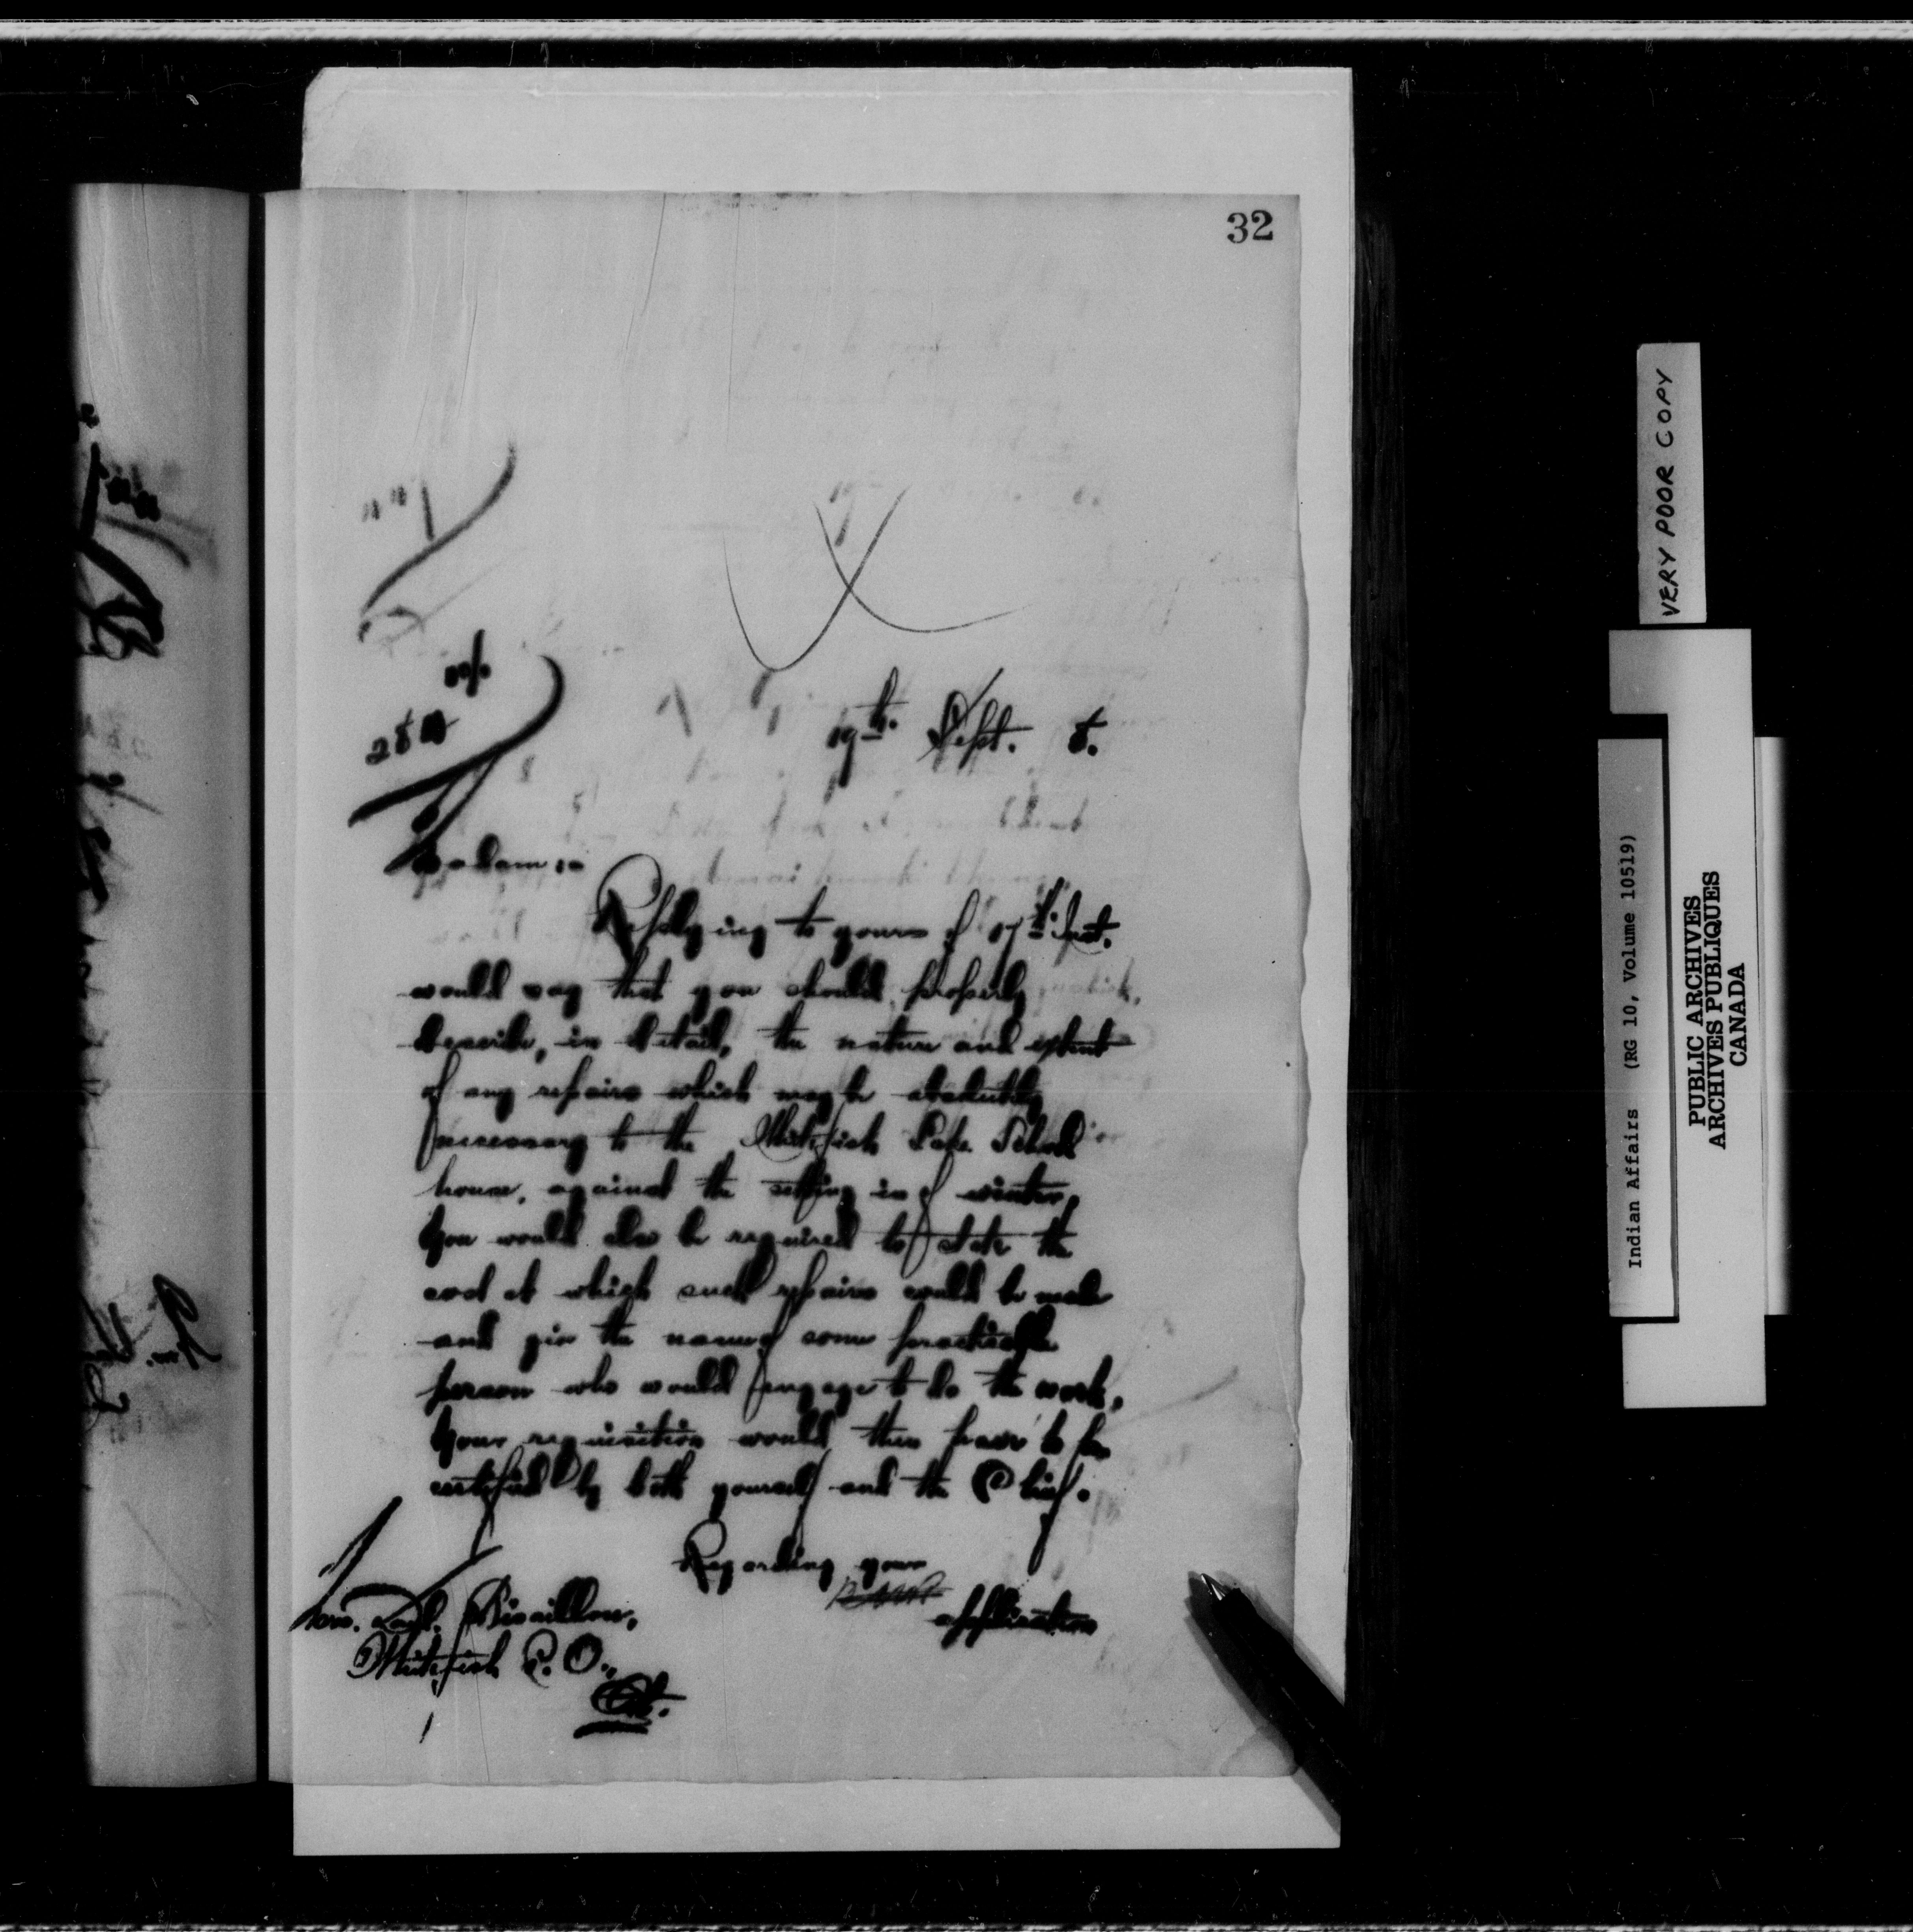 32
19th. Sept. 8.
Madam:-
Replying to yours of 17th. Inst.
would say that you should properly
describe, in detail, the nature and extent
of any repairs which may be absolutely
necessary to the Whitefish Lake School
house, against the setting in of winter,
You would also be required to state the
cost at which such repairs could be made
and give the name of some practicable
person who would engage to do the work,
Your requisition would then have to be
certified by both yourself and the Chief.
Regarding your
application
Bisaillon,
Whitefish P. O.,
Ont.
VERY POOR COPY
Indian Affairs (RG 10, Volume 10519)
PUBLIC ARCHIVES
ARCHIVES PUBLIQUES
CANADA